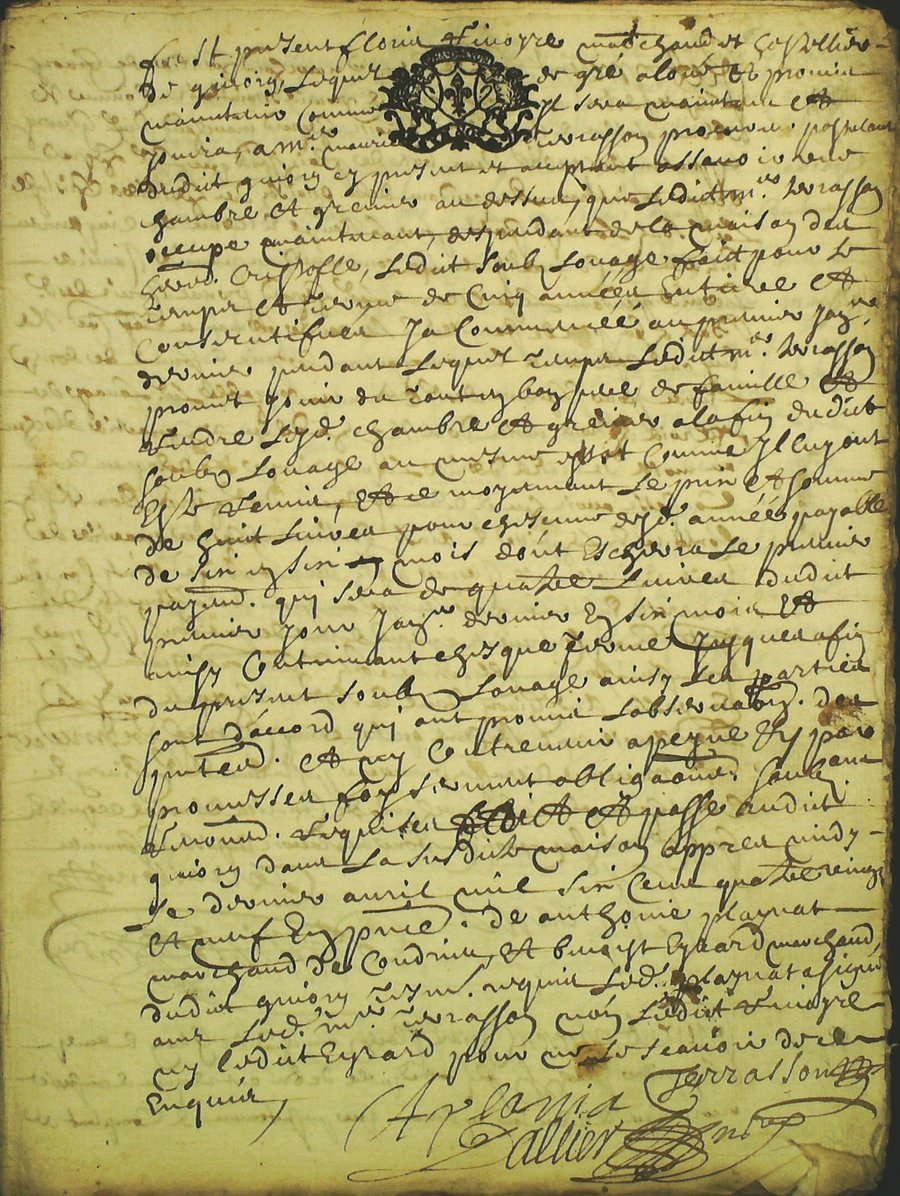 fust present florie marchand et hostellier
de quiory lequel de gré a loué et promis
maintenir comme Il sera maintenu et
jouira, a mre maurice Terrasson procureur postulant
dudict quiory cy present et acceptant assavoir une
chambre et grenier au dessus, que ledict mre terrasson
occupe maintenant, despendant de la maison des
Cristofle, ledict soubz louage faict pour le
temps et terme de Cinq années Entiere et
Consecutifves Ja Commencé au premier janr
dernier pendant lequel temps ledict mre terrasson
promet jouir du tout en bon pere de famille et
rendre lesd. chambre et grenier a la fin dudict
soubz louage au mesme estat comme Il luy ont
Esté remis, et ce moyennant le prix et somme
de huict livres pour chescune desd. année payable
de six en six mois dont Eschera le premier
payemt. qui sera de quatre livres dudict
premier jour janr. dernier En six mois et
ainsy Continuant chesque terme jusques a fin
du present soubz louage ainsy les parties
sont d'accord qui ont promis l'observation. des
presentes. et ny Contrevenir a peyne Et par
promesses foy serment obligaons. soubz
Renond. requises et passé audict
quiory dans la susdicte maison appres midy
le dernier avril mil six Cent quatre vingt
et neuf En pnce. de anthonie plaznat
marchand de Condrieu, et benoist Eyrard marchand,
dudict quiory tesm. requis led. plaznat a signé
avec led. mre terrasson non ledict
ny ledict Eyrard pour ne le scavoir de ce
Enquis,
Terrasson
A plasnia
Dallier